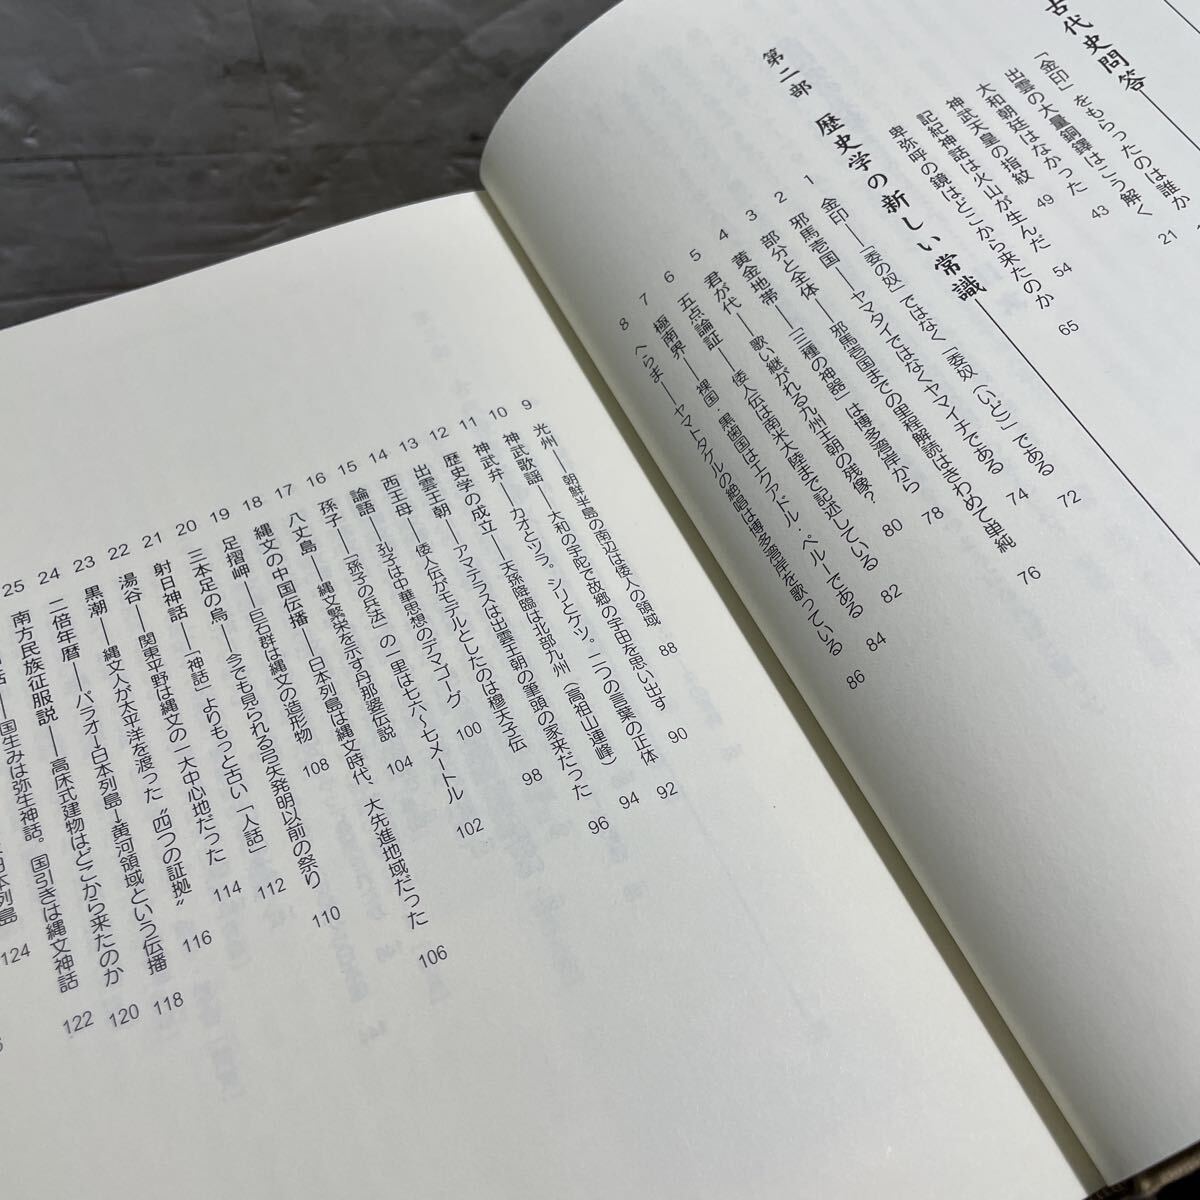 古代史問答
「金印」をもらったのは誰か
出雲の大量銅鐸はこう解く 21
大和朝廷はなかった 43
神武天皇の指紋 49
記紀神話は火山が生んだ 54
卑弥呼の鏡はどこから来たのか 65
第二部 歴史学の新しい常識
1 金印——「委の奴」ではなく「委奴(いど)」である 72
2 邪馬壱国——ヤマタイではなくヤマイチである 74
3 部分と全体——邪馬壱国までの里程解読はきわめて単純 76
4 黄金地帯——「三種の神器」は博多湾岸から 78
5 君が代——歌い継がれる九州王朝の残像? 80
6 五点論証——倭人伝は南米大陸まで記述している 82
7 極南界——裸国・黒歯国はエクアドル・ペルーである 84
8 へらま——ヤマトタケルの絶唱は博多湾岸を歌っている 86
9 光州——朝鮮半島の南辺は倭人の領域 88
10 神武歌謡——大和の宇陀で故郷の宇田を思い出す 90
11 神武弁——カオとツラ。シリとケツ。二つの言葉の正体 92
12 歴史学の成立——天孫降臨は北部九州(高祖山連峰) 94
13 出雲王朝——アマテラスは出雲王朝の筆頭の家来だった 96
14 西王母——倭人伝がモデルとしたのは穆天子伝 98
15 論語——孔子は中華思想のデマゴーグ 100
16 孫子——「孫子の兵法」の一里は七六〜七メートル 102
17 八丈島——縄文繁栄を示す丹那婆伝説 104
18 縄文の中国伝播——日本列島は縄文時代、大先進地域だった 106
19 足摺岬——巨石群は縄文の造形物 108
20 三本足の烏——今でも見られる弓矢発明以前の祭り 110
21 射日神話——「神話」よりもっと古い「人話」 112
22 湯谷——関東平野は縄文の一大中心地だった 114
23 黒潮——縄文人が太平洋を渡った〝四つの証拠〟 116
24 二倍年暦——パラオ—日本列島—黄河領域という伝播 118
25 南方民族征服説——高床式建物はどこから来たのか 120
国生みは弥生神話。国引きは縄文神話 122
日本列島 124